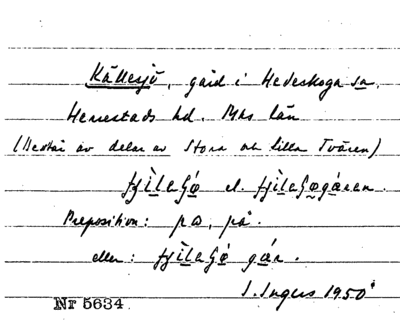 Källesjö, gård i Hedeskoga sn,
Herrestads hd. Mhs län
(Består av delar av Stora och Lilla Tvären)
el.
Preposition: på.
eller:
I. Ingers 1950
Nr 5634